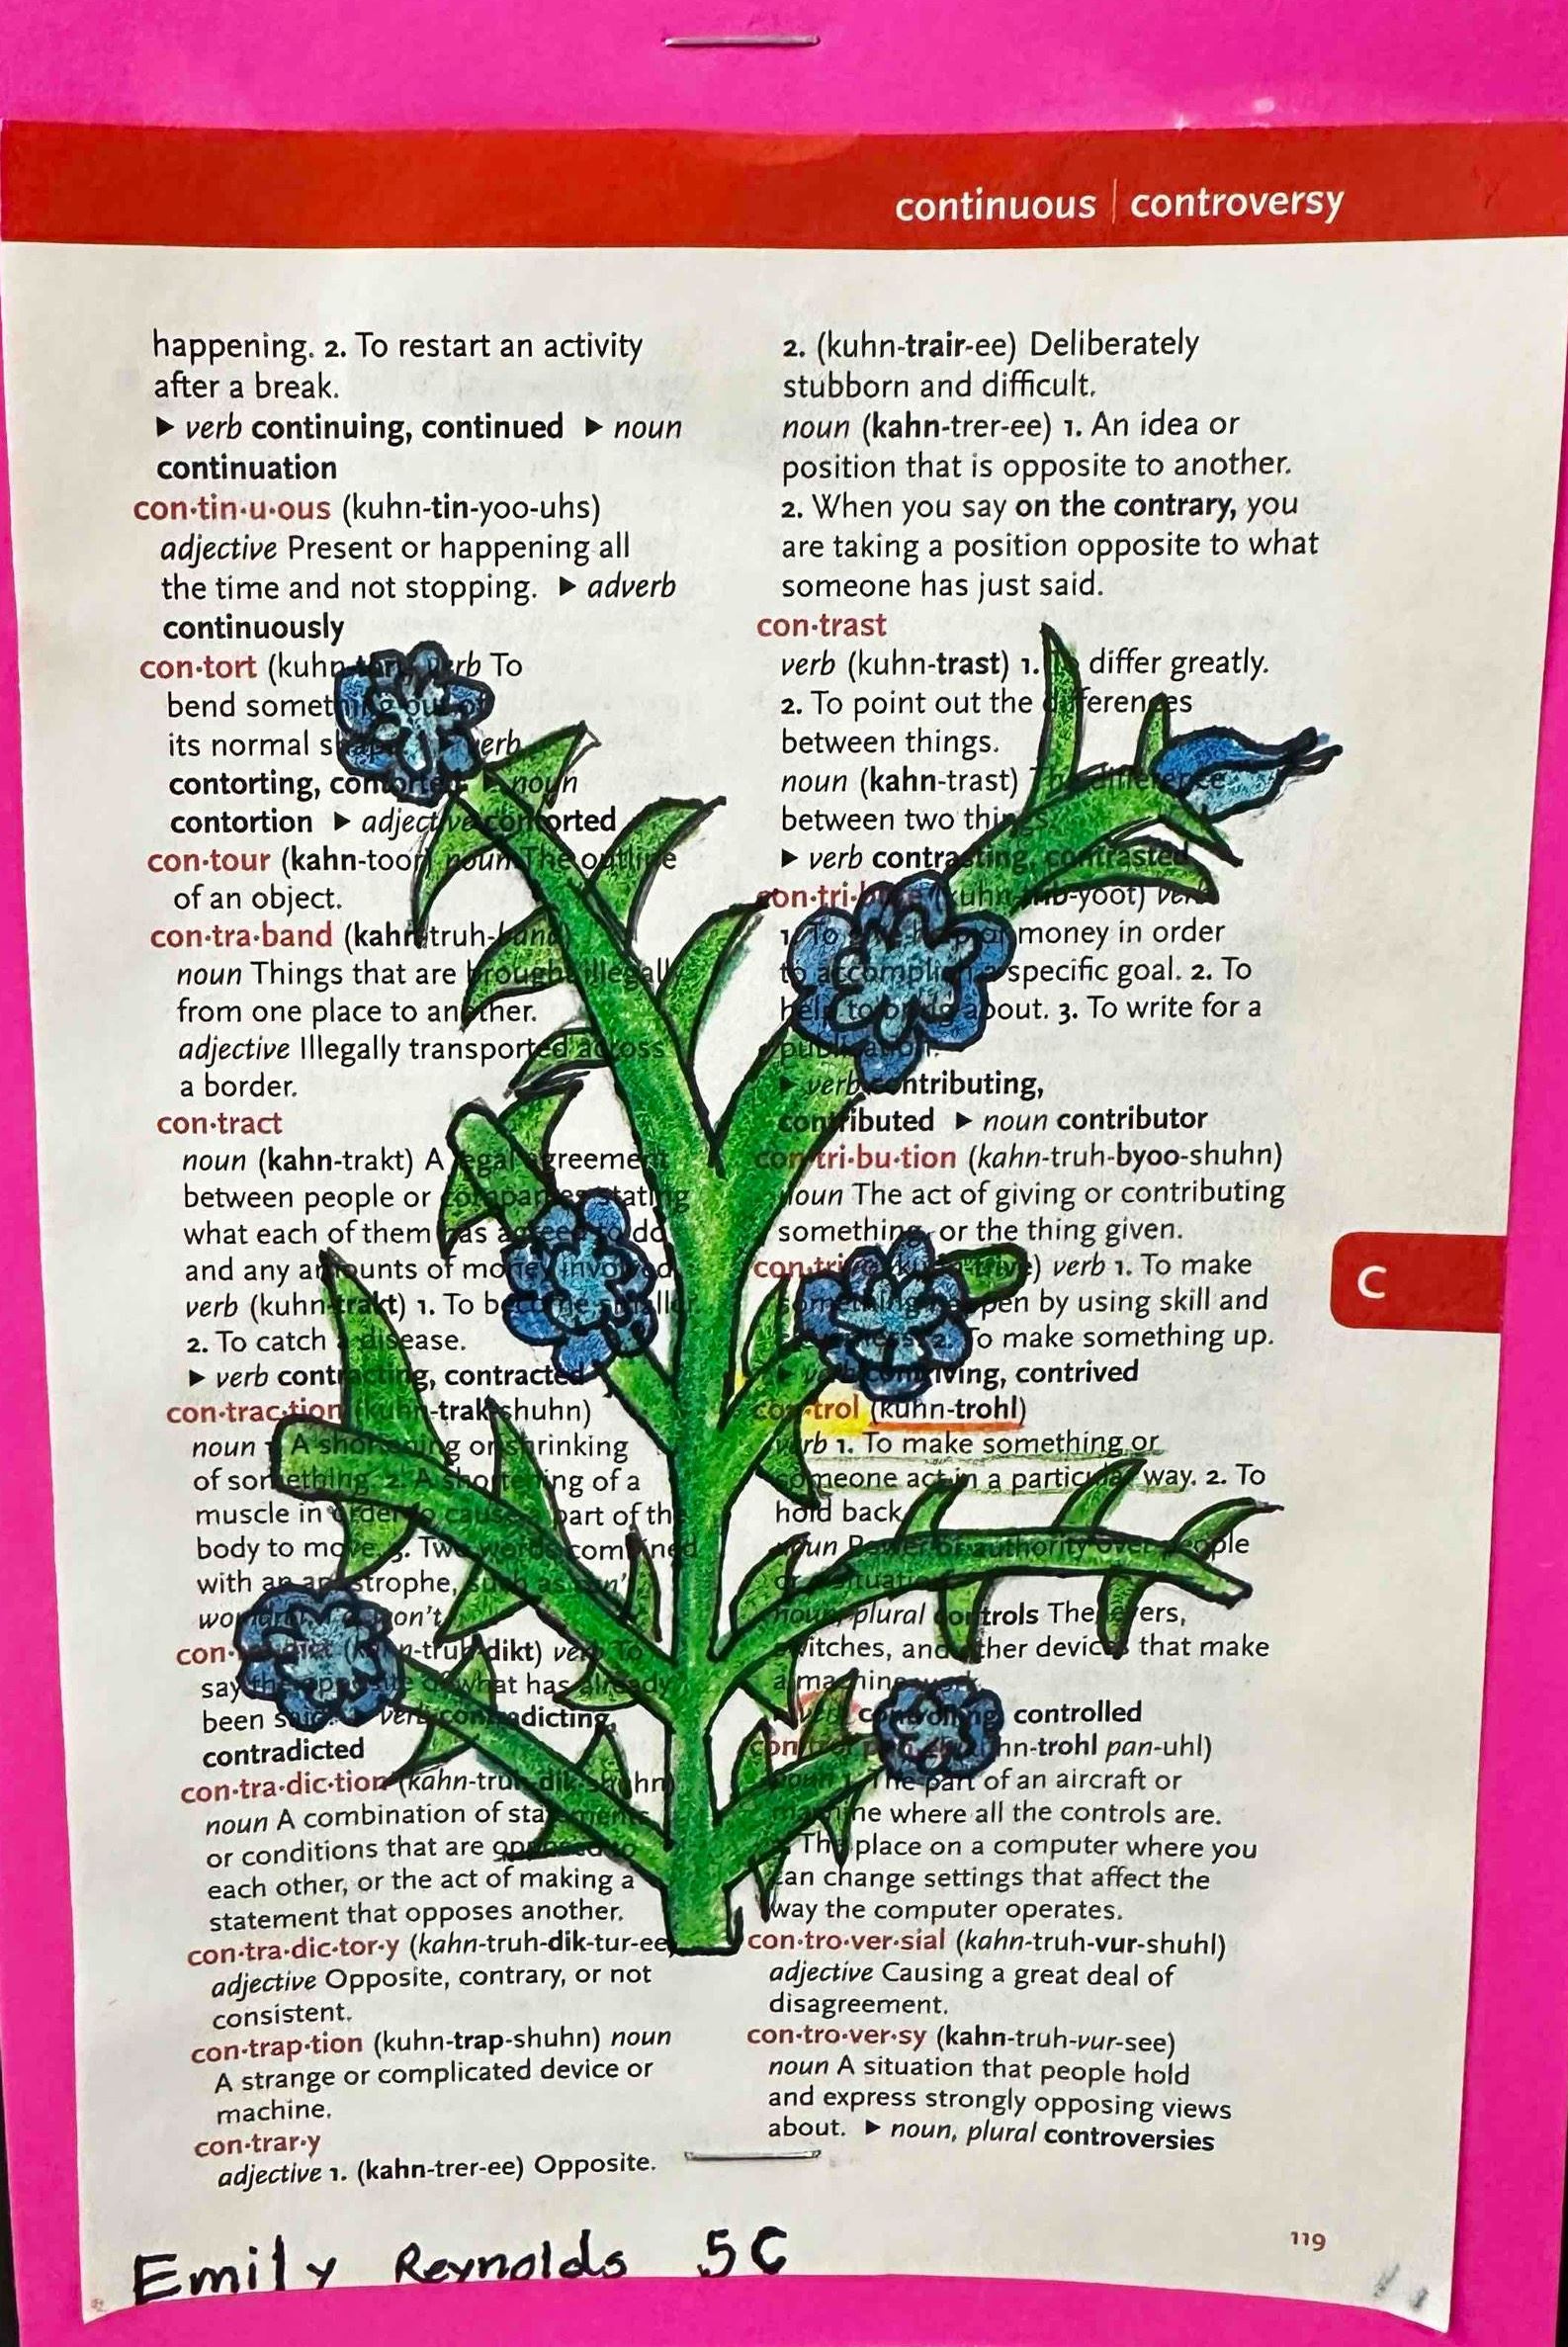 continuous | controversy
happening. 2. To restart an activity
after a break.
▶ verb continuing, continued ▶ noun
continuation
con·tin·u·ous (kuhn-tin-yoo-uhs)
adjective Present or happening all
the time and not stopping. ▶ adverb
continuously
con·tort (kuhn-tort) verb To
bend something out of
its normal shape. ▶ verb
contorting, contorted ▶ noun
contortion ▶ adjective contorted
con·tour (kahn-toor) noun The outline
of an object.
con·tra·band (kahn-truh-band)
noun Things that are brought illegally
from one place to another.
adjective Illegally transported across
a border.
con·tract
noun (kahn-trakt) A legal agreement
between people or companies stating
what each of them has agreed to do
and any amounts of money involved.
verb (kuhn-trakt) 1. To become smaller.
2. To catch a disease.
▶ verb contracting, contracted
con·trac·tion (kuhn-trak-shuhn)
noun 1. A shortening or shrinking
of something. 2. A shortening of a
muscle in order to cause a part of the
body to move. 3. Two words combined
with an apostrophe, such as can't
won't
con· (kahn-truh-dikt) verb To
say the opposite of what has already
been said. ▶ verb contradicting,
contradicted
con·tra·dic·tion (kahn-truh-dik-shuhn)
noun A combination of statements
or conditions that are opposed to
each other, or the act of making a
statement that opposes another.
con·tra·dic·tor·y (kahn-truh-dik-tur-ee)
adjective Opposite, contrary, or not
consistent.
con·trap·tion (kuhn-trap-shuhn) noun
A strange or complicated device or
machine.
con·trar·y
adjective 1. (kahn-trer-ee) Opposite.
2. (kuhn-trair-ee) Deliberately
stubborn and difficult.
noun (kahn-trer-ee) 1. An idea or
position that is opposite to another.
2. When you say on the contrary, you
are taking a position opposite to what
someone has just said.
con·trast
verb (kuhn-trast) 1. To differ greatly.
2. To point out the differences
between things.
noun (kahn-trast) The difference
between two things.
▶ verb contrasting, contrasted
con·tri·bute (kuhn-trib-yoot) verb
1. To money in order
to accomplish a specific goal. 2. To
help to bring about. 3. To write for a
publication.
▶ verb contributing,
contributed ▶ noun contributor
con·tri·bu·tion (kahn-truh-byoo-shuhn)
noun The act of giving or contributing
something, or the thing given.
con·trive (kuhn-trive) verb 1. To make
something happen by using skill and
2. To make something up.
▶ verb contriving, contrived
con·trol (kuhn-trohl)
verb 1. To make something or
someone act in a particular way. 2. To
hold back.
noun Power or authority over people
or situations.
noun, plural controls The levers,
switches, and other devices that make
a machine work.
▶ verb controlling, controlled
control panel (kuhn-trohl pan-uhl)
noun 1. The part of an aircraft or
machine where all the controls are.
2. The place on a computer where you
can change settings that affect the
way the computer operates.
con·tro·ver·sial (kahn-truh-vur-shuhl)
adjective Causing a great deal of
disagreement.
con·tro·ver·sy (kahn-truh-vur-see)
noun A situation that people hold
and express strongly opposing views
about. ▶ noun, plural controversies
C
119
Emily Reynolds 5C